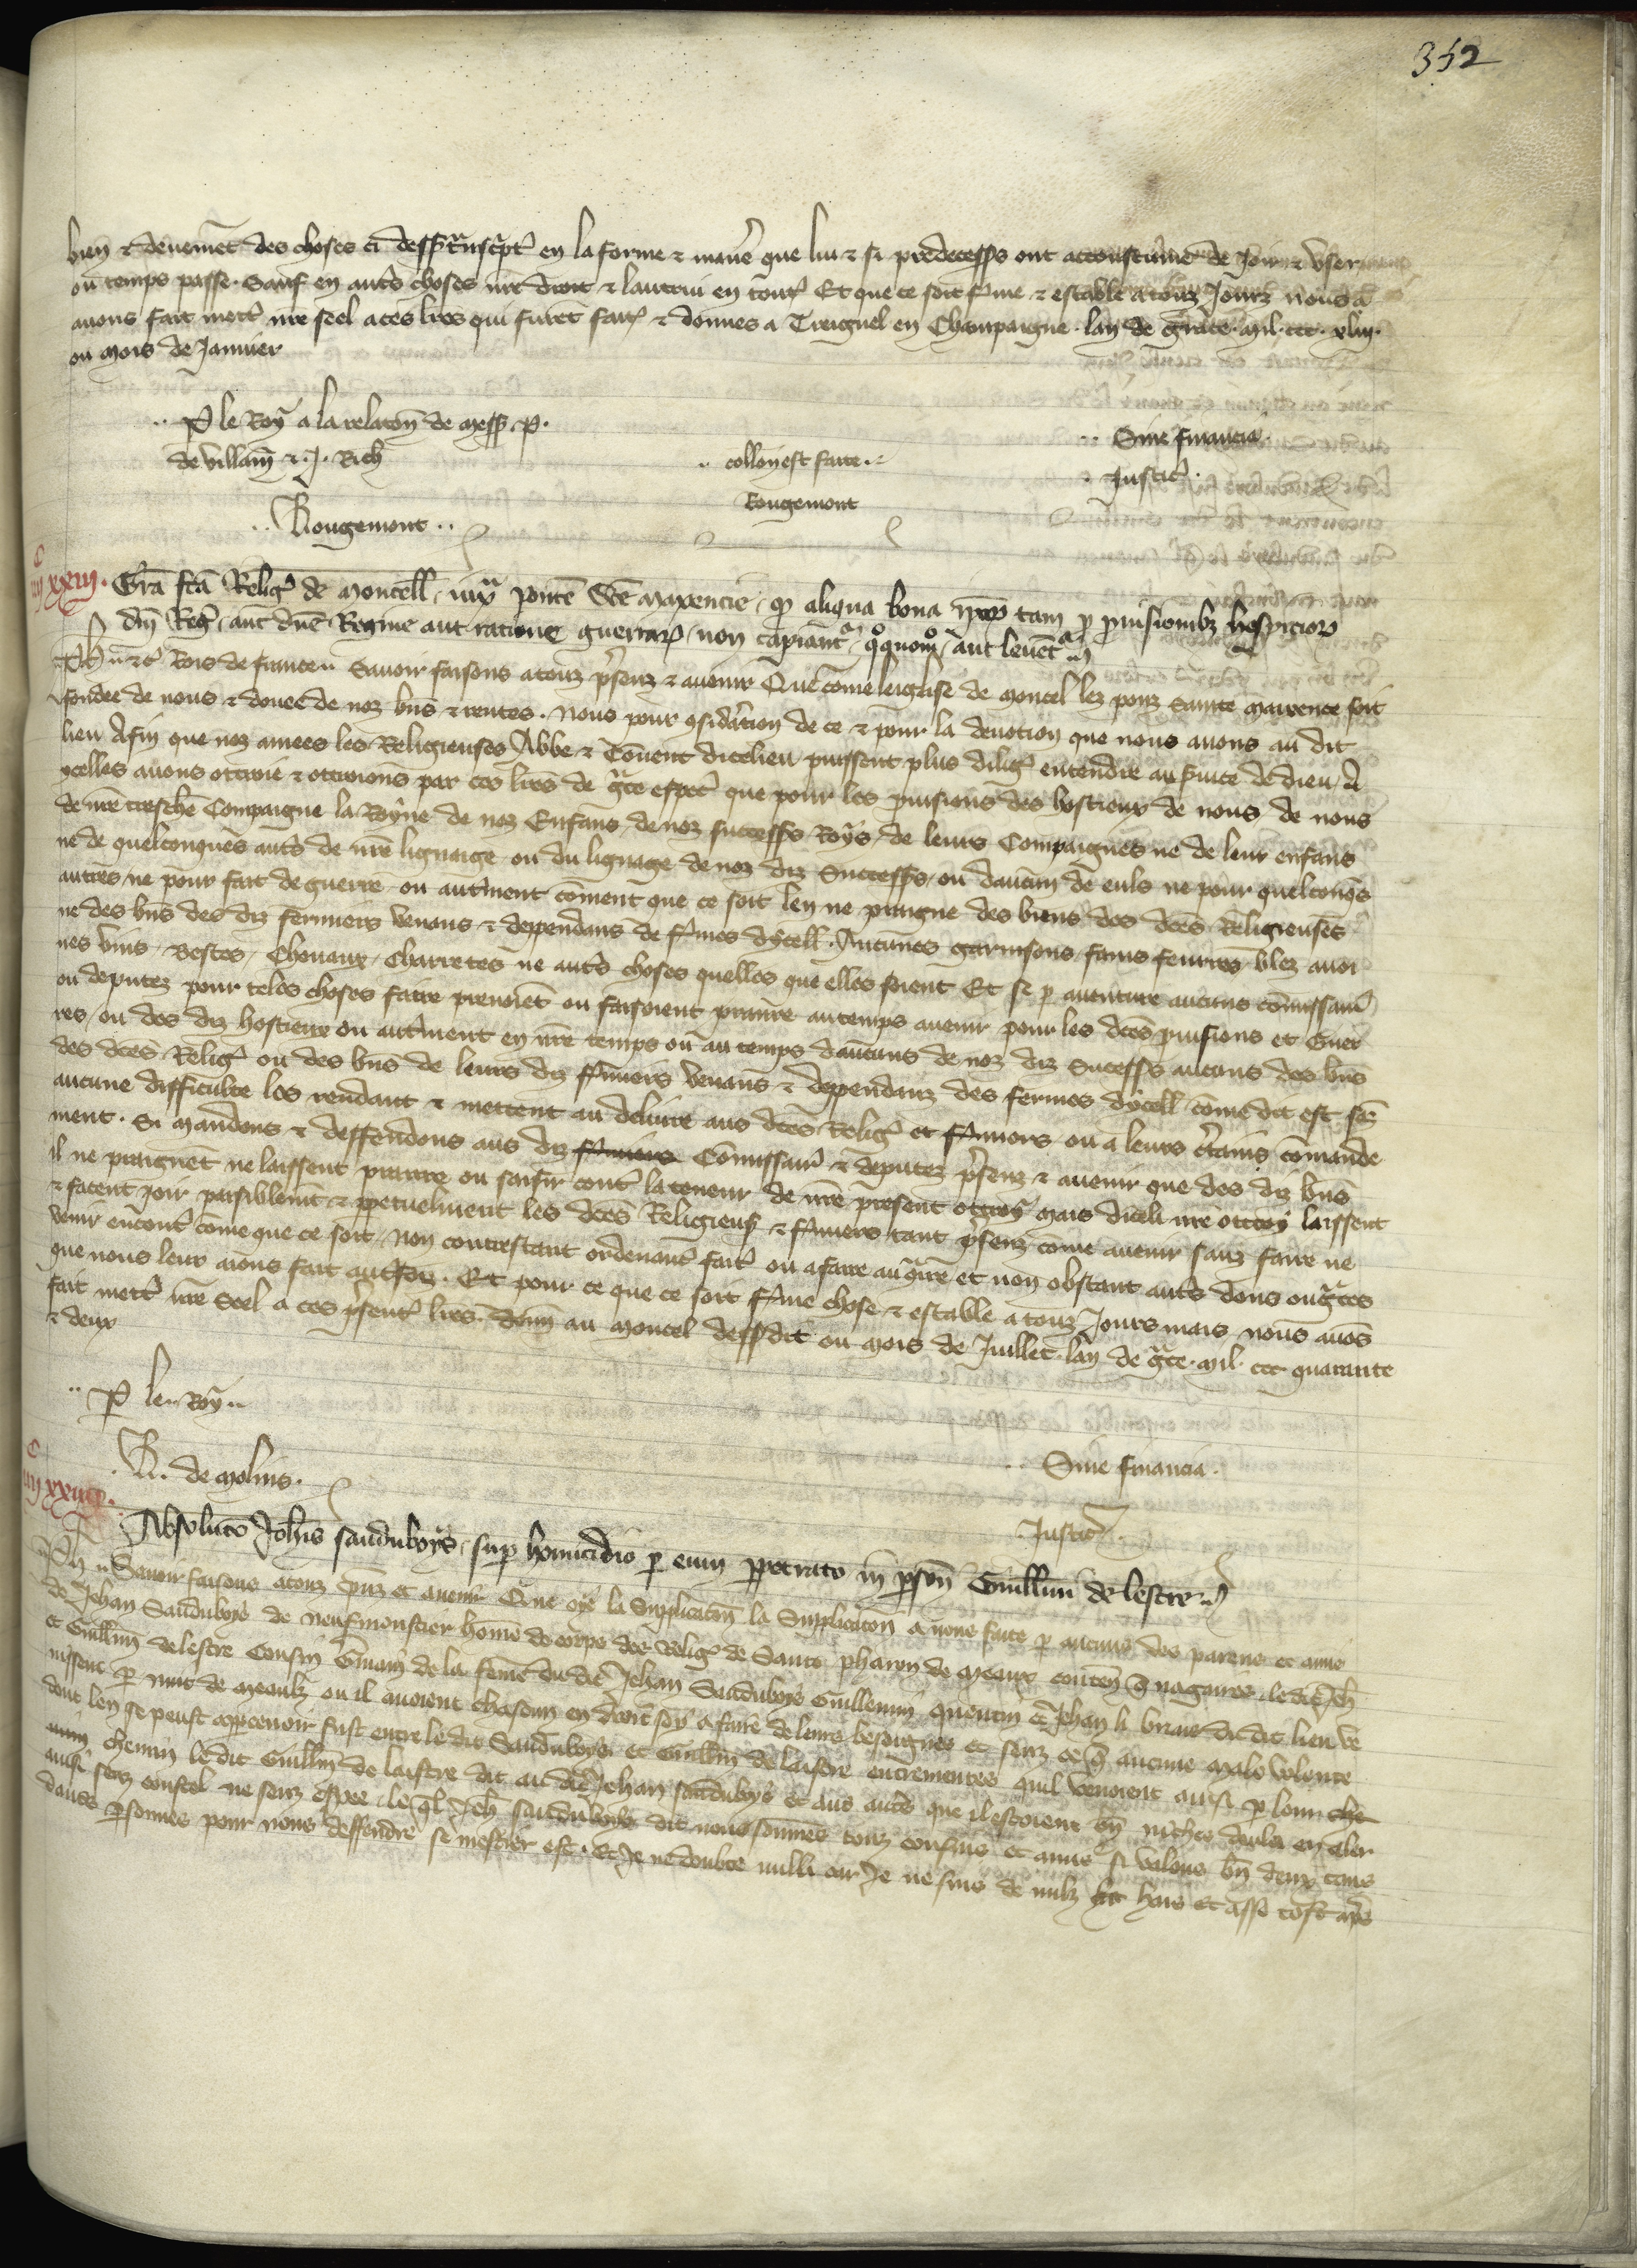 352
bien & deuement des choses ci dessus transcript en la forme & maniere que lui & si predecesss ont accoustume de Joir & user
ou temps passe. Sauf en autres choses nre droit & lautrui en toutes Et que ce soit ferme & estable a touz Jourz nous a
auons fait mettre nre seel a ces lres qui furent faites & donnes a Treignel en Champaigne. lan de grace. mil. ccc. xliii.
ou mois de Januier
.. P le Roy a la relaton de mess. P.
de villain & J. Rich
.. Rougemont ..
.. collon est faite.
Rougemont
.. Sine financia.
Justice.
c
iiii xxiii. Gra fca Relig de moncell, iuxa ponte Sce maxencie, q aliqua bona ipsarum tam p prouisionibz hospicior
dni Reg, aut dne Regine aut ratione guerrar, non capiant, quoquomo, aut leuent
Ph & c Rois de france Sauoir faisons a touz presenz & auenir Que come leglise de moncel lez ponz Sainte maixence soit
fondee de nous & douee de noz bns & rentes. Nous pour gsidation de ce & pour la deuotion que nous auons au dit
lieu Afin que noz amees les Religieuses Abbe & Couent dicelieu puissent plus dilig entendre au seruice de dieu, A
ycelles auons ottroie & ottroions par ces lres de grace especial que pour les prouisions des hostieux de nous, de nous
de nre treschiere Compaigne la Royne de noz Enfans, de noz successs Roys, de leurs Compaignes ne de leur enfans
ne de quelconques autres de nre lignaige ou du lignage de noz diz Successs, ou daucun de euls ne pour quelconqs
autres, ne pour fait de guerre ou autrement coment que ce soit len ne praigne des biens des dces Religieuses
ne des bns des diz fermiers venans & dependans de fermes dycell. Aucunes garnisons, fains feurres blez auoi
nes vins, bestes, Cheuaux, Charretes ne autres choses quelles que elles soient Et se p auenture aucuns comissaires
ou deputez pour teles choses faire prenoient ou faisoient pranre au temps auenir pour les dces prouisions et Guer
res, ou des diz hostieux ou autrement en nre temps ou au temps daucuns de noz diz Sucesss aucuns des bns
des dces Relig ou des bns de leurs diz fermiers venans & dependanz des fermes dycell come dit est senz
aucune difficulte les rendant & mettent au deliure aus dces Relig et fermiers ou a leurs certains comande
ment. Si mandons & deffendons aus diz fermiers Comissaires & deputez presenz & auenir que des diz bns
il ne praignent ne laissent prenre ou saisir contre la teneur de nre present ottroy mais diceli nre ottroy laissent
& facent joir paisiblement & ppetuelment les dces Religieuses & fermiers tant presenz come auenir sanz faire ne
venir encontre come que ce soit, Non contrestant ordenance faite ou a faire au contraire et non obstant autres dons ou graces
que nous leur aions fait autresfoiz. Et pour ce que ce soit ferme chose & estable a touz Jours mais nous auos
fait mettre nre Seel a ces presentes lres. donn au moncel dessusdit ou mois de Juillet lan de grace. mil. ccc quarante
& deux
.. P le.. Roy ..
R. de molins.
.. Sine financia.
Justice.
c
iiii xxiiii. Absoluto Johis sauduboys, sup homicidio p eum ppetrato in pson Guillmi de lestre
Ph Sauoir faisons a touz psenz et auenir Que oye la Supplicaton la Supplicaton a nous faite p aucuns des parens et amis
de Jehan Sauduboys de neufmoustier home de corps des Relig de Saint pharon de meaux contenant q nagaires le dit Jeh
et Guillm de lestre Cousin Germain de la feme du dit Jehan Sauduboys Guillemin quentin et Jehan li brun du dit lieu ve
nissent p nuit de meaulx ou il auoient chascun en droit soy a faire de leurs besoignes et senz ce q aucune male volente
dont len se peust appceuoir fust entre le dit Sauduboys et Guillm de laistre entrementes quil venoient ausi p lour che
min chemin le dit Guillm de laistre dit au dit Jehan sauduboys et aus autres que il estoient bn niches daler en aler
ausi senz coustel ne senz espee, le ql Jeh sauduboys dit nous sommes touz cousins et amis si valons bn deux tans
dautres psonnes pour nous deffendre se mestier est. Et Je ne doubte nulli car Je ne suis de nulz hais et asse tost apres